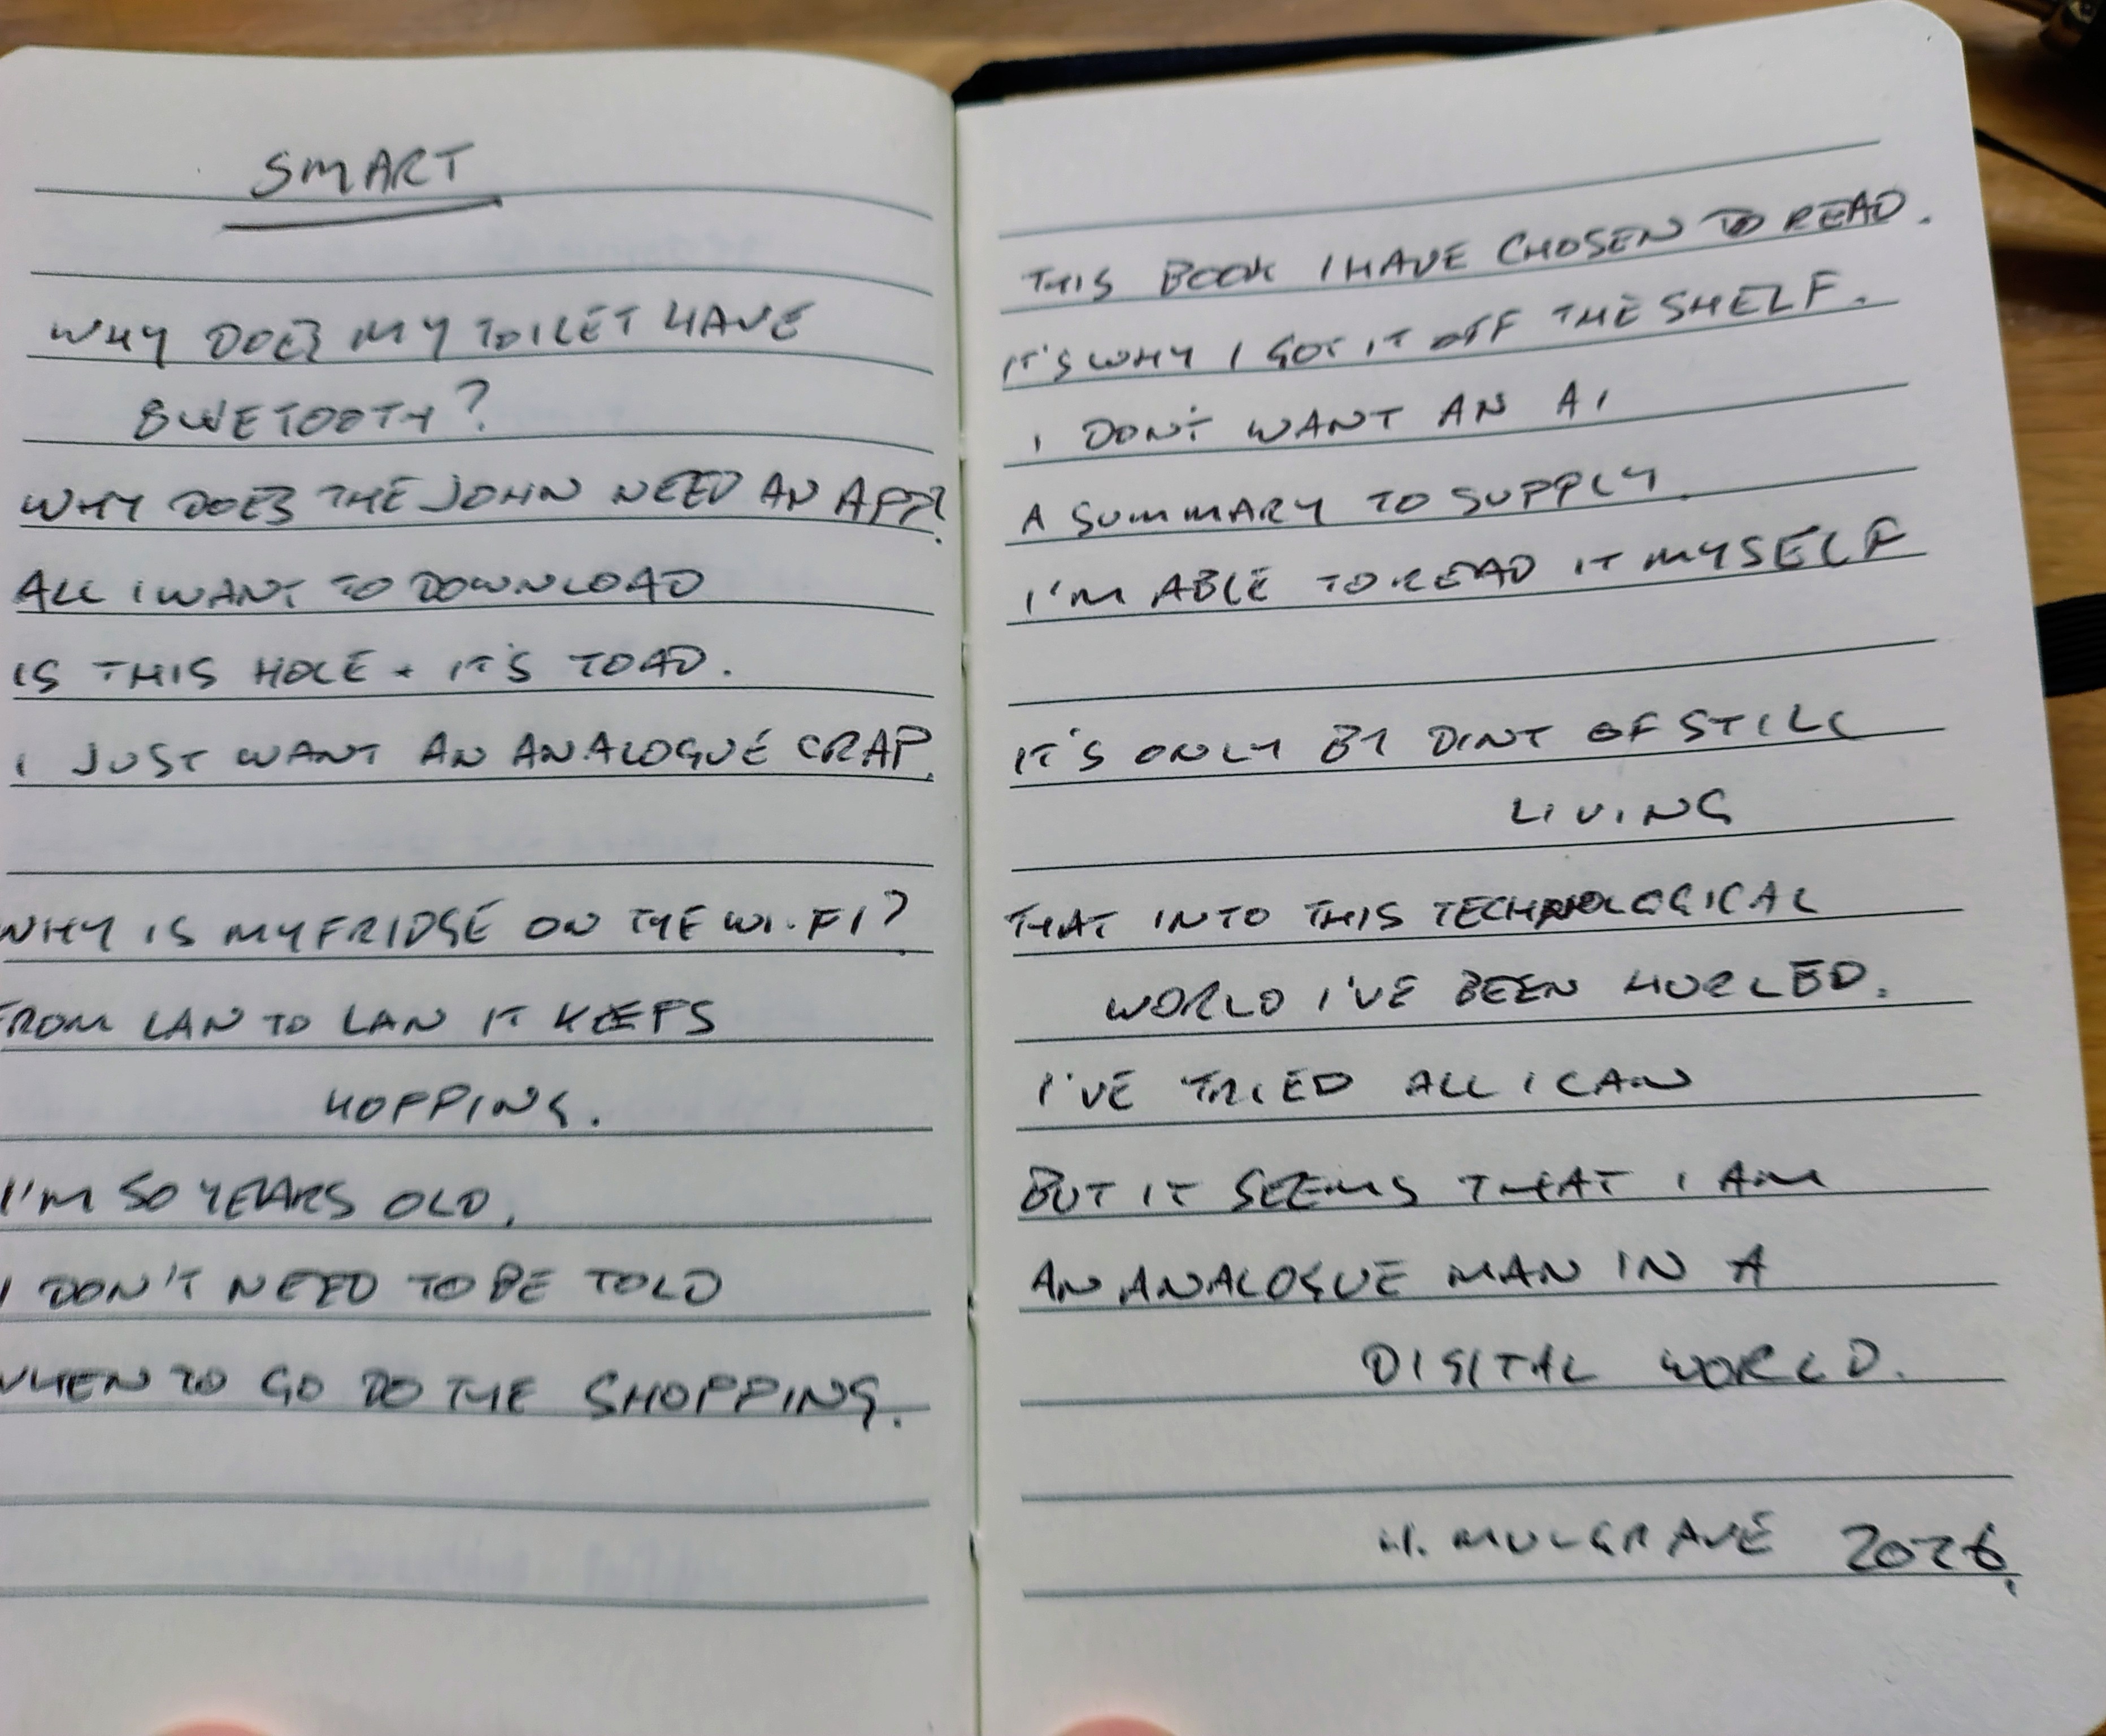 SMART
WHY DOES MY TOILET HAVE
BLUETOOTH?
WHY DOES THE JOHN NEED AN APP?
ALL I WANT TO DOWNLOAD
IS THIS HOLE + IT'S TOAD.
I JUST WANT AN ANALOGUE CRAP.
WHY IS MY FRIDGE ON THE WI-FI?
FROM LAN TO LAN IT KEEPS
HOPPING.
I'M 50 YEARS OLD,
I DON'T NEED TO BE TOLD
WHEN TO GO DO THE SHOPPING.
THIS BOOK I HAVE CHOSEN TO READ.
IT'S WHY I GOT IT OFF THE SHELF.
I DON'T WANT AN AI
A SUMMARY TO SUPPLY
I'M ABLE TO READ IT MYSELF
IT'S ONLY BY DINT OF STILL
LIVING
THAT INTO THIS TECHNOLOGICAL
WORLD I'VE BEEN HURLED.
I'VE TRIED ALL I CAN
BUT IT SEEMS THAT I AM
AN ANALOGUE MAN IN A
DIGITAL WORLD.
H. MULGRAVE 2026